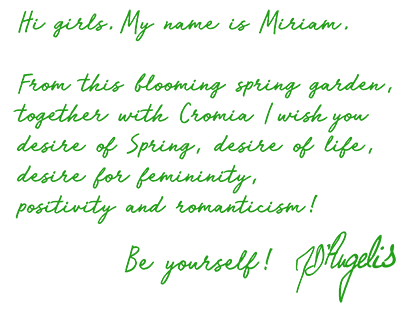 Hi girls. My name is Miriam.
From this blooming spring garden,
together with Cromia I wish you
desire of Spring, desire of life,
desire for femininity,
positivity and romanticism!
Be yourself! D'Angelis